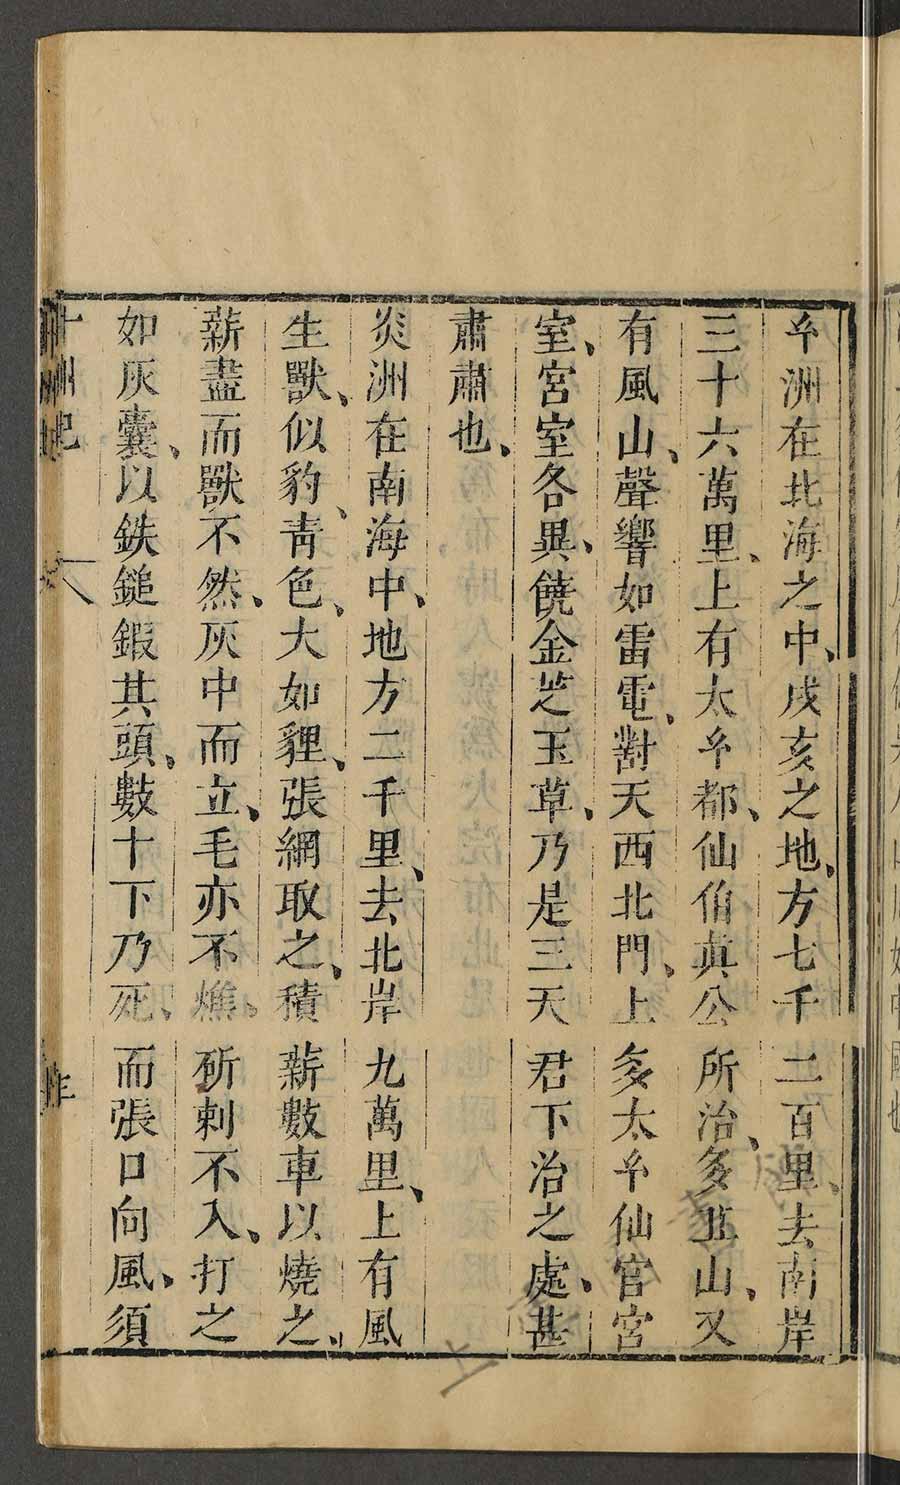 玄洲在北海之中、戌亥之地、方七千二百里、去南岸
三十六萬里、上有太玄都、仙伯真公所治、多丘山、又
有風山、聲響如雷電、對天西北門、上多太玄仙官宮
室、宮室各異、饒金芝玉草、乃是三天君下治之處、甚
肅肅也、
炎洲在南海中、地方二千里、去北岸九萬里、上有風
生獸、似豹、青色、大如貍、張網取之、積薪數車以燒之、
薪盡而獸不然、灰中而立、毛亦不燋、斫刺不入、打之
如灰囊、以鉄鎚鍜其頭、數十下乃死、而張口向風、須
十洲記